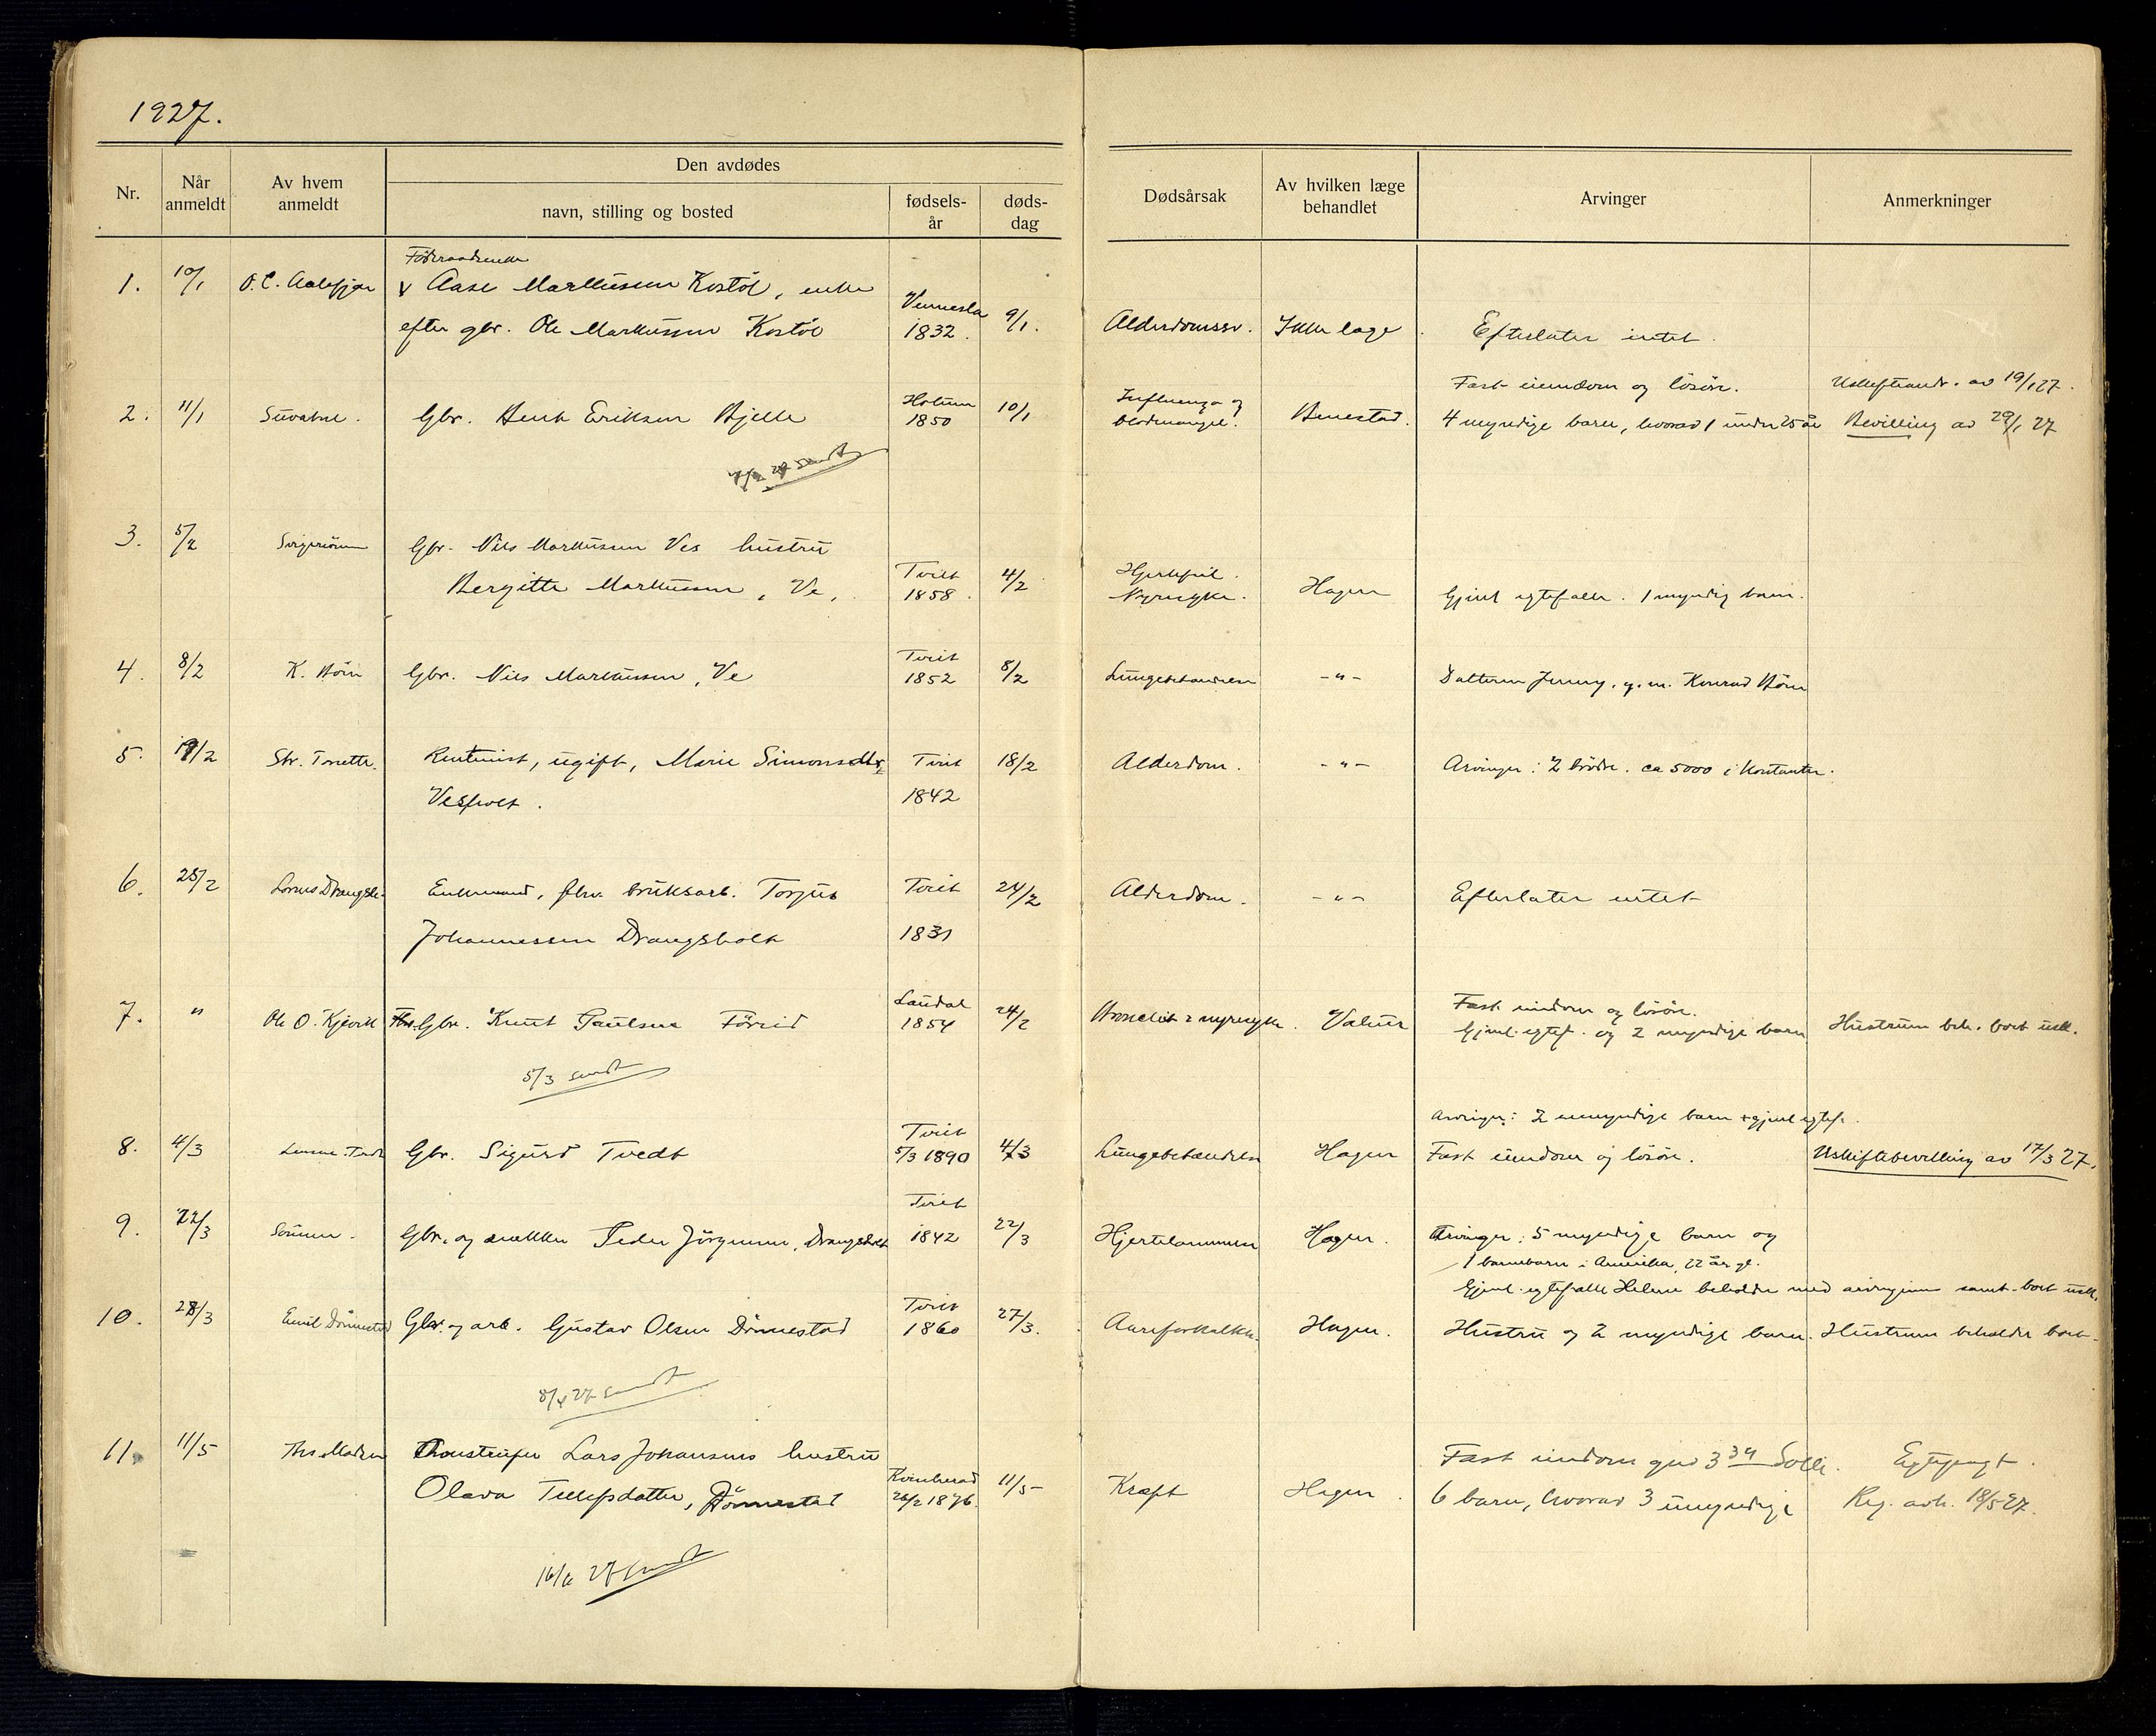 1927.
Nr.
Når anmeldt
Av hvem anmeldt
Den avdødes
navn, stilling og bosted
fødsels-år
døds-dag
Dødsårsak
Av hvilken læge behandlet
Arvinger
Anmerkninger
1. 10/1 O. C. Aalefjær Føderaadsenke
v Aase Markussen Kostöl, enke
efter gbr. Ole Markussen Kostöl Vennesla 1832. 9/1. Alderdomssv. Ikke læge. Efterlater intet.
2. 11/1 Gbr. Bent Eriksen Bjelle Holum 1850 10/1 Influenza og blodmangel. Benestad. Fast eiendom og lösöre.
4 myndige barn, hvorav 1 under 25 år
av 19/1 27.
Bevilling av 29/1 27
sendt
3. 5/2 Gbr. Nils Markussen Ves hustru
Bergitte Markussen, Ve, Tveit 1858. 4/2 Hjertefeil. Nyresyke. Hagen Gjenl. egtefælle. 1 myndig barn.
4. 8/2 K. Böen Gbr. Nils Markussen, Ve Tveit 1852 8/2 Lungebetændelse -"- Datteren Jenny, g. m. Konrad Böen
5. 19/2 Rentenist, ugift, Marie Simonsdtr, Tveit 18/2 Alderdom. -"- Arvinger: 2 brödre. ca 5000 i kontanter.
1842
6. 25/2 Enkemand, fhv. bruksarb. Torjus Tveit 24/2 Alderdom. -"- Efterlater intet
Johannessen Drangsholt 1831
7. " Ole O. Kjevik Gbr. Knut Paulsen Laudal 1854 24/2 Bronchit & nyresyke. Valeur Fast eiendom og lösöre.
Gjenl. egtef. og 2 myndige barn Hustruen beh. boet usk.
5/3 sendt
Arvinger: 2 umyndige barn + gjenl egtef.
8. 4/3 Gbr. Sigurd Tvedt Tveit 5/3 1890 4/3 Lungebetændelse Hagen Fast eiendom og lösöre. Uskiftebevilling av 17/3 27.
9. 22/3 Gbr. og snekker Peder Jörgensen, Drangsholt Tveit 1842 22/3 Hjertelammelse Hagen. Arvinger: 5 myndige barn og
1 barnebarn i Amerika, 22 år gl.
Gjenl. egtefælle Helene beholder med arvingenes samt. boet usk.
10. 28/3 Emil Dönnestad Gbr. og arb. Gustav Olsen Dönnestad Tveit 1860 27/3. Aareforkalkn. Hagen. Hustru og 2 myndige barn. Hustruen beholder boet
8/4 27 sendt
11. 11/5 Ths. Madsen Lars Johansens hustru
Olava Tellefsdatter, Dönnestad Kvinherad 26/2 1876. 11/5 Kræft Hagen. Fast eiendom gno 3 34 Solli.
6 barn, hvorav 3 umyndige Egtepagt.
Reg. avh. 18/5 27.
16/6 27 sendt